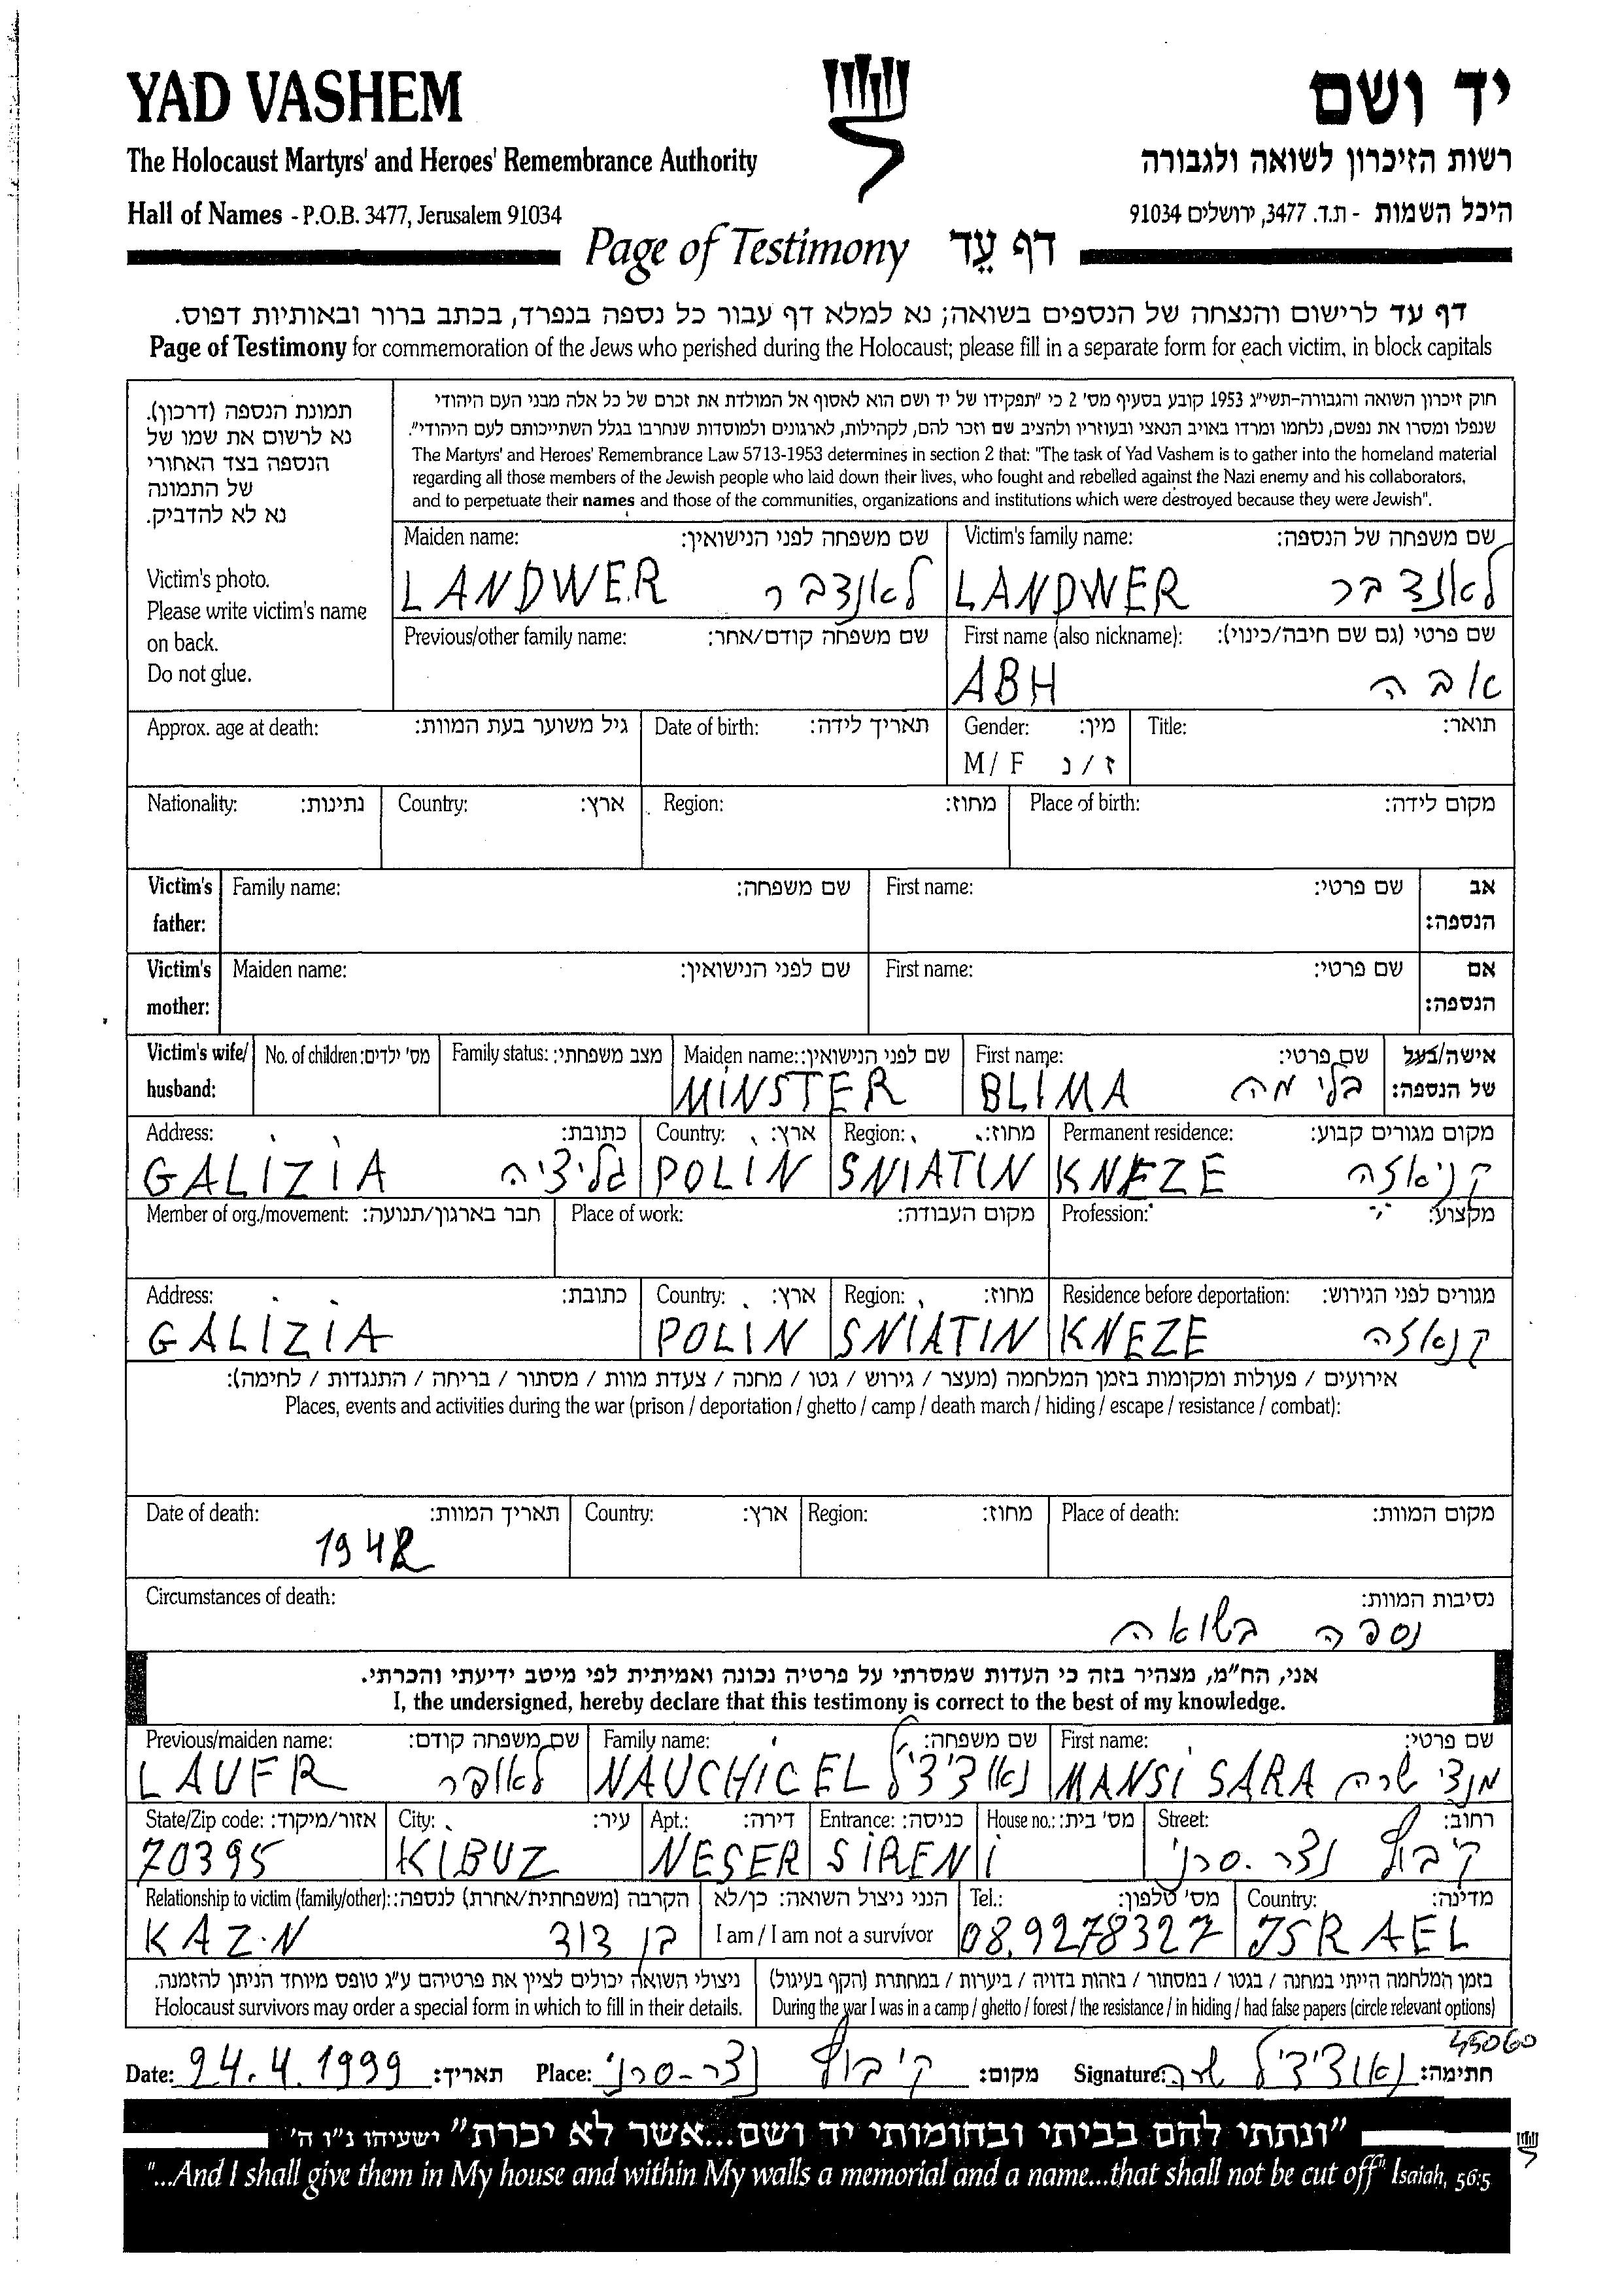 YAD VASHEM יד ושם
The Holocaust Martyrs' and Heroes' Remembrance Authority רשות הזיכרון לשואה ולגבורה
Hall of Names - P.O.B. 3477, Jerusalem 91034 היכל השמות - ת.ד. 3477, ירושלים 91034
Page of Testimony דף עֵד
דף עד לרישום והנצחה של הנספים בשואה; נא למלא דף עבור כל נספה בנפרד, בכתב ברור ובאותיות דפוס.
Page of Testimony for commemoration of the Jews who perished during the Holocaust; please fill in a separate form for each victim, in block capitals
תמונת הנספה (דרכון).
נא לרשום את שמו של
הנספה בצד האחורי
של התמונה
נא לא להדביק.
Victim's photo.
Please write victim's name
on back.
Do not glue.
חוק זיכרון השואה והגבורה-תשי"ג 1953 קובע בסעיף מס' 2 כי "תפקידו של יד ושם הוא לאסוף אל המולדת את זכרם של כל אלה מבני העם היהודי
שנפלו ומסרו את נפשם, נלחמו ומרדו באויב הנאצי ובעוזריו ולהציב שם וזכר להם, לקהילות, לארגונים ולמוסדות שנחרבו בגלל השתייכותם לעם היהודי".
The Martyrs' and Heroes' Remembrance Law 5713-1953 determines in section 2 that: "The task of Yad Vashem is to gather into the homeland material
regarding all those members of the Jewish people who laid down their lives, who fought and rebelled against the Nazi enemy and his collaborators,
and to perpetuate their names and those of the communities, organizations and institutions which were destroyed because they were Jewish".
Maiden name: שם משפחה לפני הנישואין: Victim's family name: שם משפחה של הנספה:
LANDWER לאנדבר LANDWER לאנדבר
Previous/other family name: שם משפחה קודם/אחר: First name (also nickname): שם פרטי (גם שם חיבה/כינוי):
ABH אבה
Approx. age at death: גיל משוער בעת המוות: Date of birth: תאריך לידה: Gender: מין: Title: תואר:
M / F ז / נ
Nationality: נתינות: Country: ארץ: Region: מחוז: Place of birth: מקום לידה:
Victim's Family name: שם משפחה: First name: שם פרטי: אב
father: הנספה:
Victim's Maiden name: שם לפני הנישואין: First name: שם פרטי: אם
mother: הנספה:
Victim's wife/ No. of children: מס' ילדים: Family status: מצב משפחתי: Maiden name: שם לפני הנישואין: First name: שם פרטי: אישה/בעל
husband: MINSTER BLIMA בלימה של הנספה:
Address: כתובת: Country: ארץ: Region: מחוז: Permanent residence: מקום מגורים קבוע:
GALIZIA גליציה POLIN SNIATIN KNEZE קניאזה
Member of org./movement: חבר בארגון/תנועה: Place of work: מקום העבודה: Profession: מקצוע:
Address: כתובת: Country: ארץ: Region: מחוז: Residence before deportation: מגורים לפני הגירוש:
GALIZIA POLIN SNIATIN KNEZE קנאזה
אירועים / פעולות ומקומות בזמן המלחמה (מעצר / גירוש / גטו / מחנה / צעדת מוות / מסתור / בריחה / התנגדות / לחימה):
Places, events and activities during the war (prison / deportation / ghetto / camp / death march / hiding / escape / resistance / combat):
Date of death: תאריך המוות: Country: ארץ: Region: מחוז: Place of death: מקום המוות:
1942
Circumstances of death: נסיבות המוות:
נספה בשואה
אני, הח"מ, מצהיר בזה כי העדות שמסרתי על פרטיה נכונה ואמיתית לפי מיטב ידיעתי והכרתי.
I, the undersigned, hereby declare that this testimony is correct to the best of my knowledge.
Previous/maiden name: שם משפחה קודם: Family name: שם משפחה: First name: שם פרטי:
LAUFR לאופר NAUCHICEL נאוצ'יצ'ל MANSI SARA מנצי שרה
State/Zip code: אזור/מיקוד: City: עיר: Apt.: דירה: Entrance: כניסה: House no.: מס' בית: Street: רחוב:
70395 KIBUZ NESER SIRENI קיבוץ נצר-סרני
Relationship to victim (family/other): הקרבה (משפחתית/אחרת) לנספה: הנני ניצול השואה: כן/לא Tel.: מס' טלפון: Country: מדינה:
KAZ.N בן דוד I am / I am not a survivor 08.9278327 ISRAEL
ניצולי השואה יכולים לציין את פרטיהם ע"ג טופס מיוחד הניתן להזמנה. בזמן המלחמה הייתי במחנה / בגטו / במסתור / בזהות בדויה / ביערות / במחתרת (הקף בעיגול)
Holocaust survivors may order a special form in which to fill in their details. During the war I was in a camp / ghetto / forest / the resistance / in hiding / had false papers (circle relevant options)
45060
Date: 24.4.1999 תאריך: Place: קיבוץ נצר-סרני מקום: Signature: נאוצ'יצ'ל שרה חתימה:
"ונתתי להם בביתי ובחומותי יד ושם...אשר לא יכרת" ישעיהו נ"ו ה'
"...And I shall give them in My house and within My walls a memorial and a name...that shall not be cut off" Isaiah, 56:5